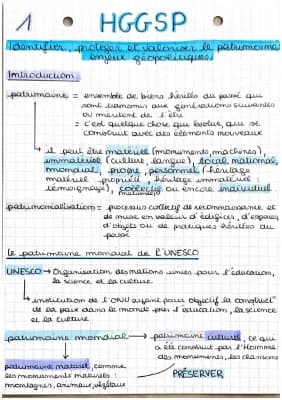 1 HGGSP
Identifier, protéger et valoriser le patrimoine
enjeux géopolitiques.
Introduction:
patrimoine = ensemble de biens hérités du passé qui
sont transmis aux générations suivantes
ou méritent de l'être
= c'est quelque chose qui évolue, qui se
construit avec des éléments nouveaux
↳ il peut être matériel (monuments, machines),
immatériel (culture, langue), local, national,
mondial, propre, personnel (héritage
matériel: propriété, héritage immatériel:
témoignage), collectif ou encore individuel
patrimonialisation = processus collectif de reconnaissance et
de mise en valeur d'édifices, d'espaces
d'objets ou de pratiques héritées du
passé
Le patrimoine mondial de l'UNESCO
UNESCO → Organisation des nations unies pour l'éducation,
la science et la culture.
↳ institution de l'ONU ayant pour objectif la construct°
de la paix dans le monde par l'éducation, la science
et la culture
patrimoine mondial → patrimoine culturel, ce qui
a été construit par l'Homme
des monuments, les chansons
patrimoine naturel, comme
les monuments naturels:
montagnes, animaux, végétaux
PRÉSERVER